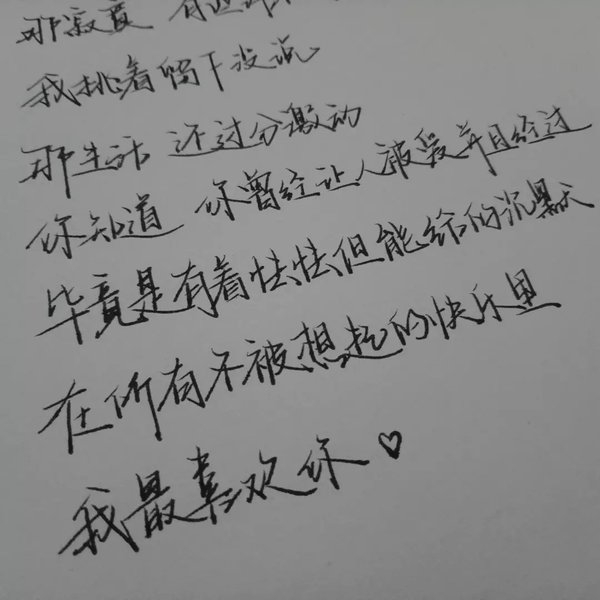 那寂寞 有些许
我挑着留下没说
那生活 还过分激动
你知道 你曾经让人被爱并且经过
毕竟是有着怯怯但能给的沉默
在所有不被想起的快乐里
我最喜欢你♡